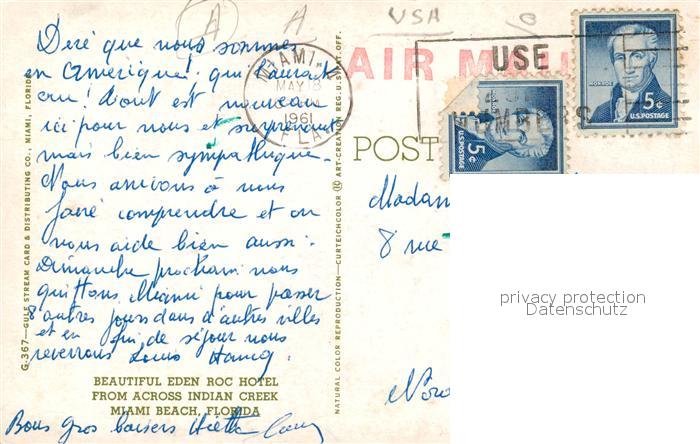 Deré que nous sommes
en Amérique! qui l'aurait
cru! tout est nouveau
ici pour nous et surprenant
mais bien sympathique.
Nous arrivons à nous
faire comprendre et on
nous aide bien aussi.
Dimanche prochain nous
quittons Miami pour passer
8 autres jours dans d'autres villes
et en fin de séjour nous
reverrons
Bons gros baisers
BEAUTIFUL EDEN ROC HOTEL
FROM ACROSS INDIAN CREEK
MIAMI BEACH, FLORIDA
G-367—GULF STREAM CARD & DISTRIBUTING CO., MIAMI, FLORIDA
NATURAL COLOR REPRODUCTION—CURTEICHCOLOR ® ART-CREATION REG. U.S. PAT. OFF.
A
A
USA
MIAMI
MAY 18
1961
FLA
AIR MAIL
USE
NUMBERS
MONROE
5¢
U.S. POSTAGE
5¢
U.S. POSTAGE
POST
Madam
8 rue
privacy protection
Datenschutz